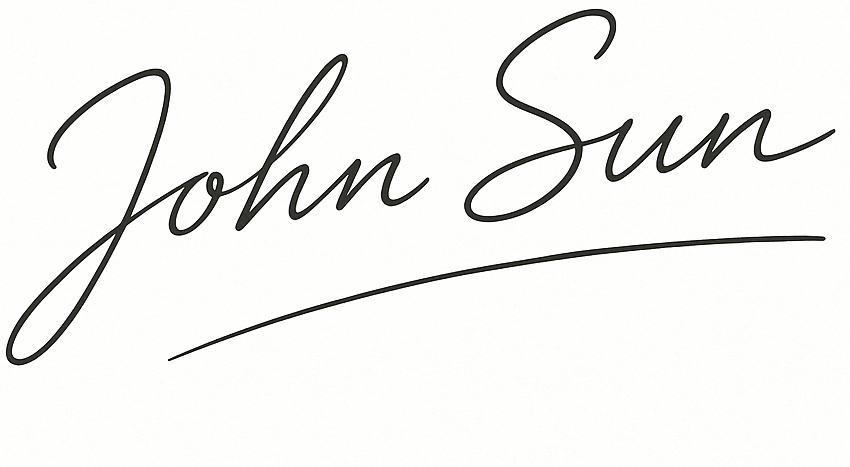 John Sun